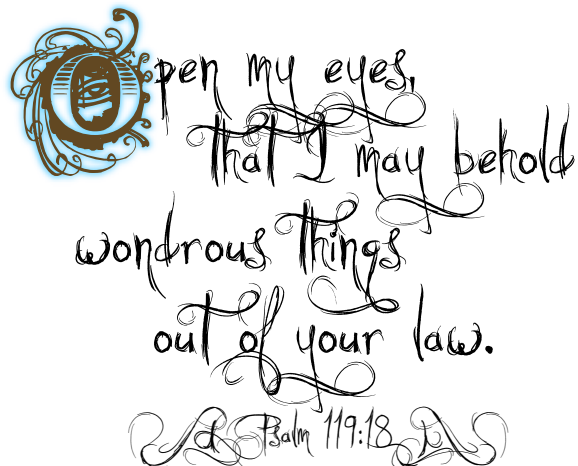 Open my eyes,
that I may behold
wondrous things
out of your law.
Psalm 119:18